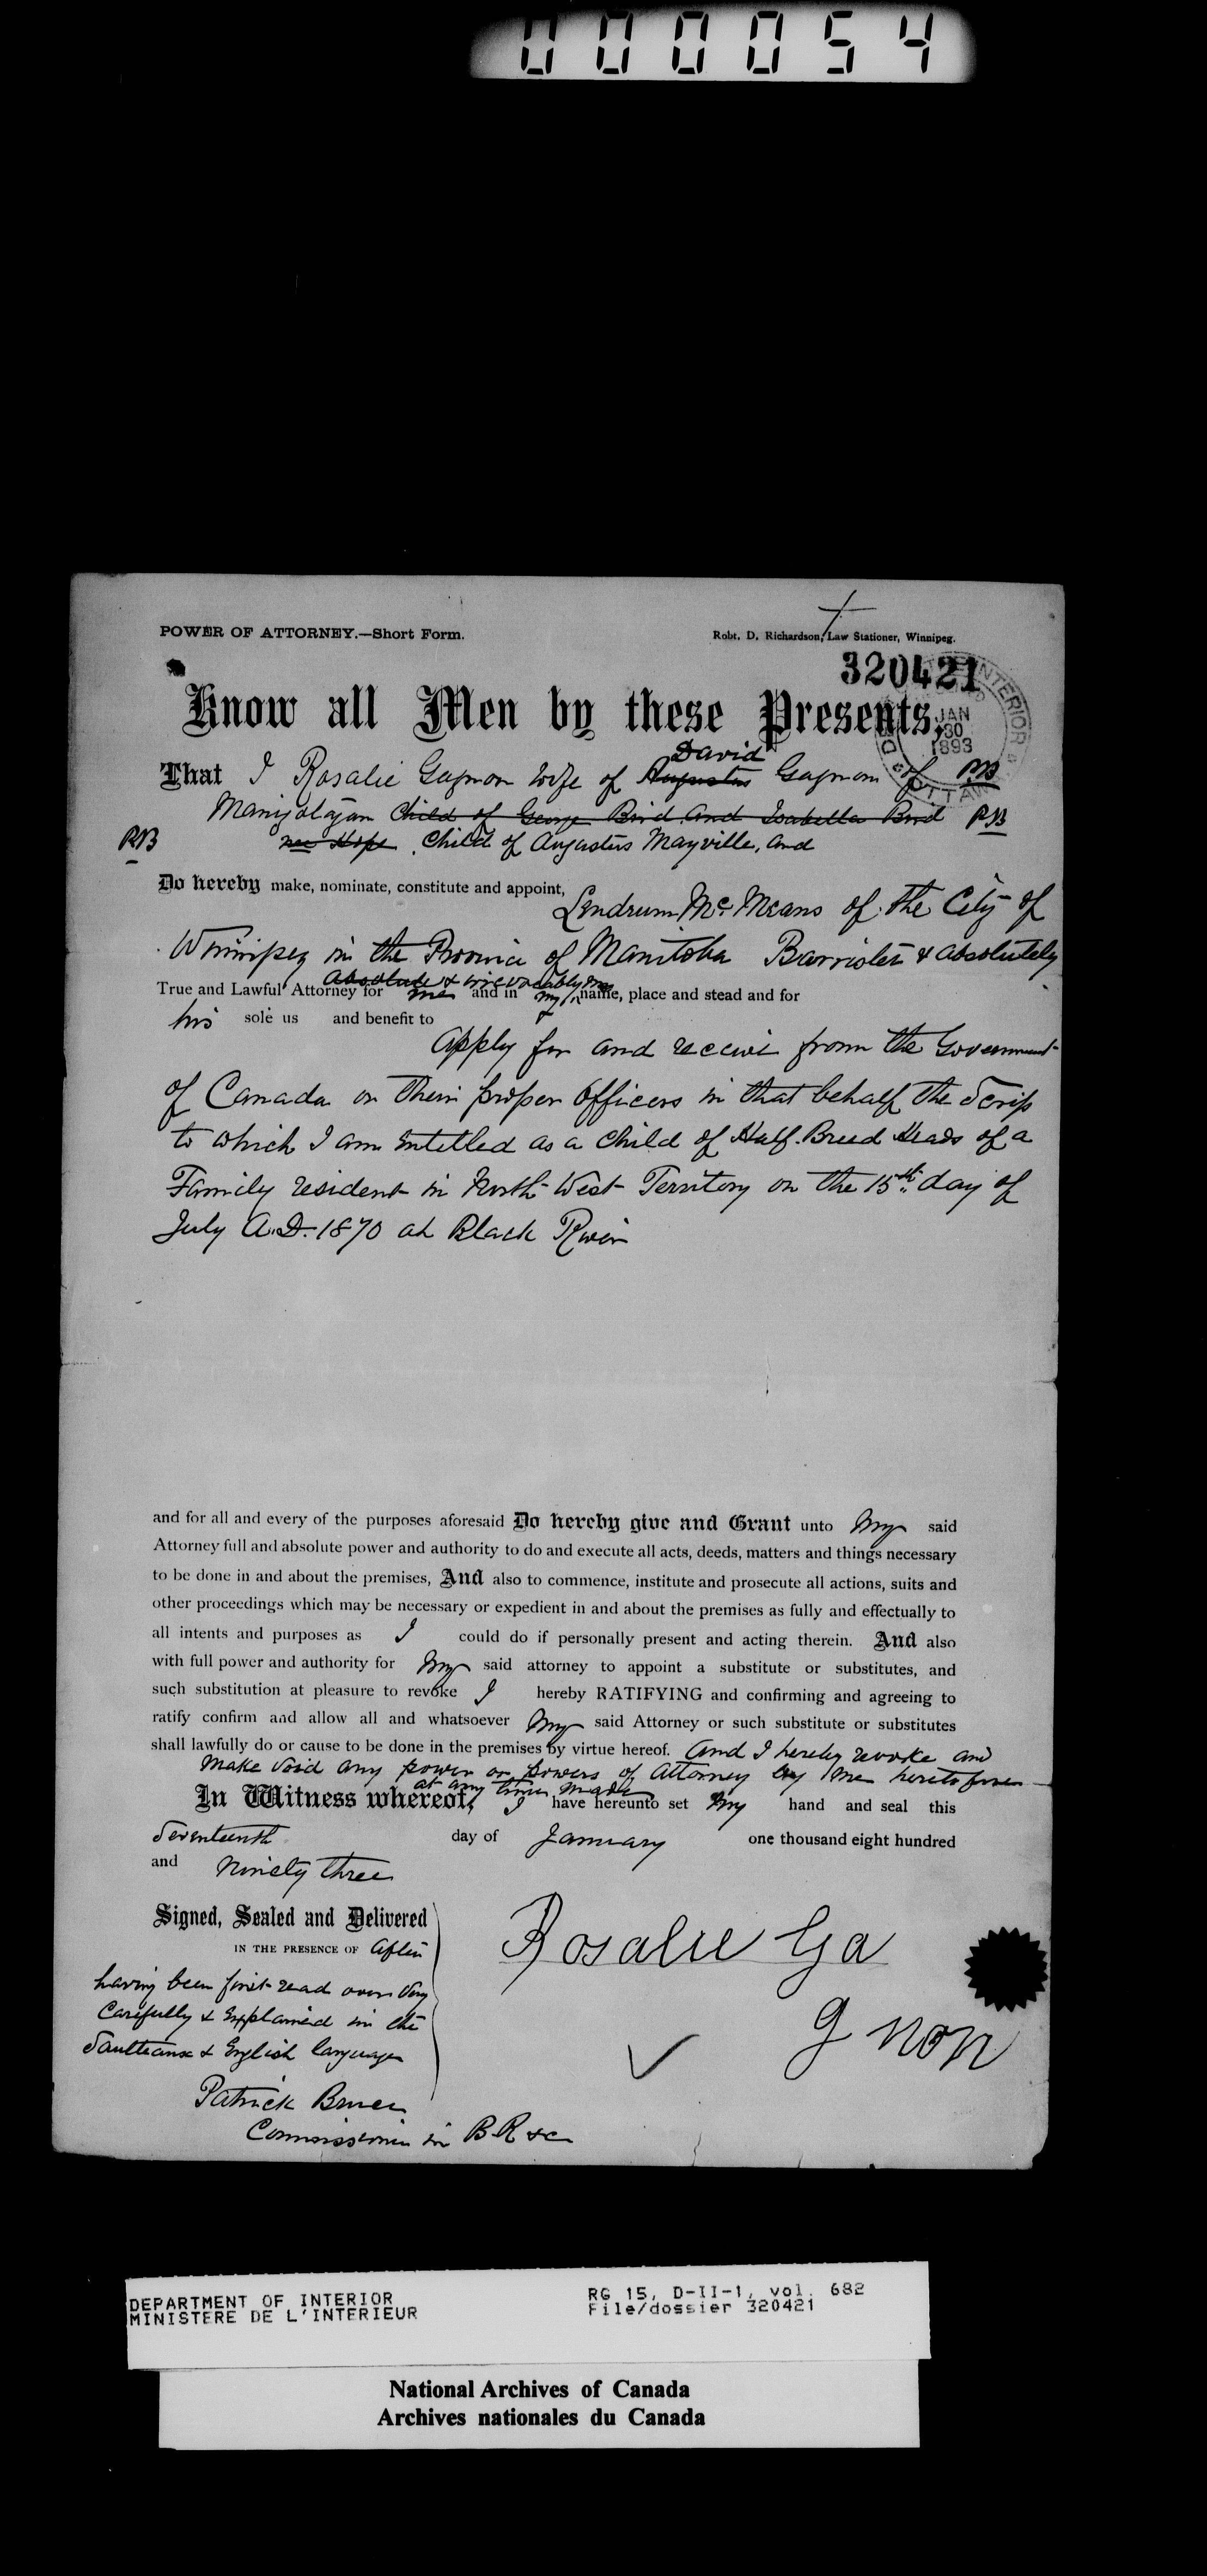 000054
POWER OF ATTORNEY.—Short Form.
Robt. D. Richardson, Law Stationer, Winnipeg.
320421
INTERIOR
JAN 30 1893
OTTAWA
Know all Men by these Presents,
David
That I Rosalie Gagnon wife of Augustus Gagnon of PB
Manigotagan Child of George Bird and Isabella Bird PB
PB nee Hope Child of Augustus Mayville, and
Do hereby make, nominate, constitute and appoint,
Lendrum McMeans of the City of
Winnipeg in the Province of Manitoba Barrister & absolutely
absolute & irrevocably my
True and Lawful Attorney for me and in my name, place and stead and for
his sole us and benefit to
apply for and receive from the Government
of Canada or their proper officers in that behalf the Scrip
to which I am entitled as a child of Half Breed Heads of a
Family resident in North West Territory on the 15th day of
July A.D. 1870 at Black River
and for all and every of the purposes aforesaid Do hereby give and Grant unto my said
Attorney full and absolute power and authority to do and execute all acts, deeds, matters and things necessary
to be done in and about the premises, And also to commence, institute and prosecute all actions, suits and
other proceedings which may be necessary or expedient in and about the premises as fully and effectually to
all intents and purposes as I could do if personally present and acting therein. And also
with full power and authority for my said attorney to appoint a substitute or substitutes, and
such substitution at pleasure to revoke I hereby RATIFYING and confirming and agreeing to
ratify confirm and allow all and whatsoever my said Attorney or such substitute or substitutes
shall lawfully do or cause to be done in the premises by virtue hereof. And I hereby revoke and
make void any power or powers of Attorney by me heretofore
at any time made
In Witness whereof, I have hereunto set my hand and seal this
Seventeenth day of January one thousand eight hundred
and ninety three
Signed, Sealed and Delivered
IN THE PRESENCE OF after
having been first read over very
carefully & explained in the
Saulteaux & English language
Patrick Bruce
Commissioner in B.R &c
Rosalie Ga
gnon
DEPARTMENT OF INTERIOR
MINISTERE DE L'INTERIEUR
RG 15, D-II-1, vol. 682
File/dossier 320421
National Archives of Canada
Archives nationales du Canada